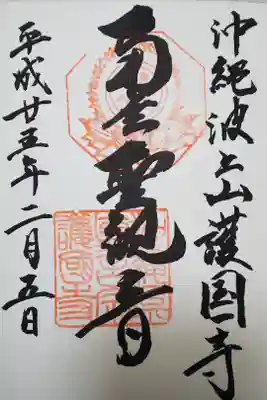 沖縄波上山護国寺
南無聖観音
平成廿五年二月五日